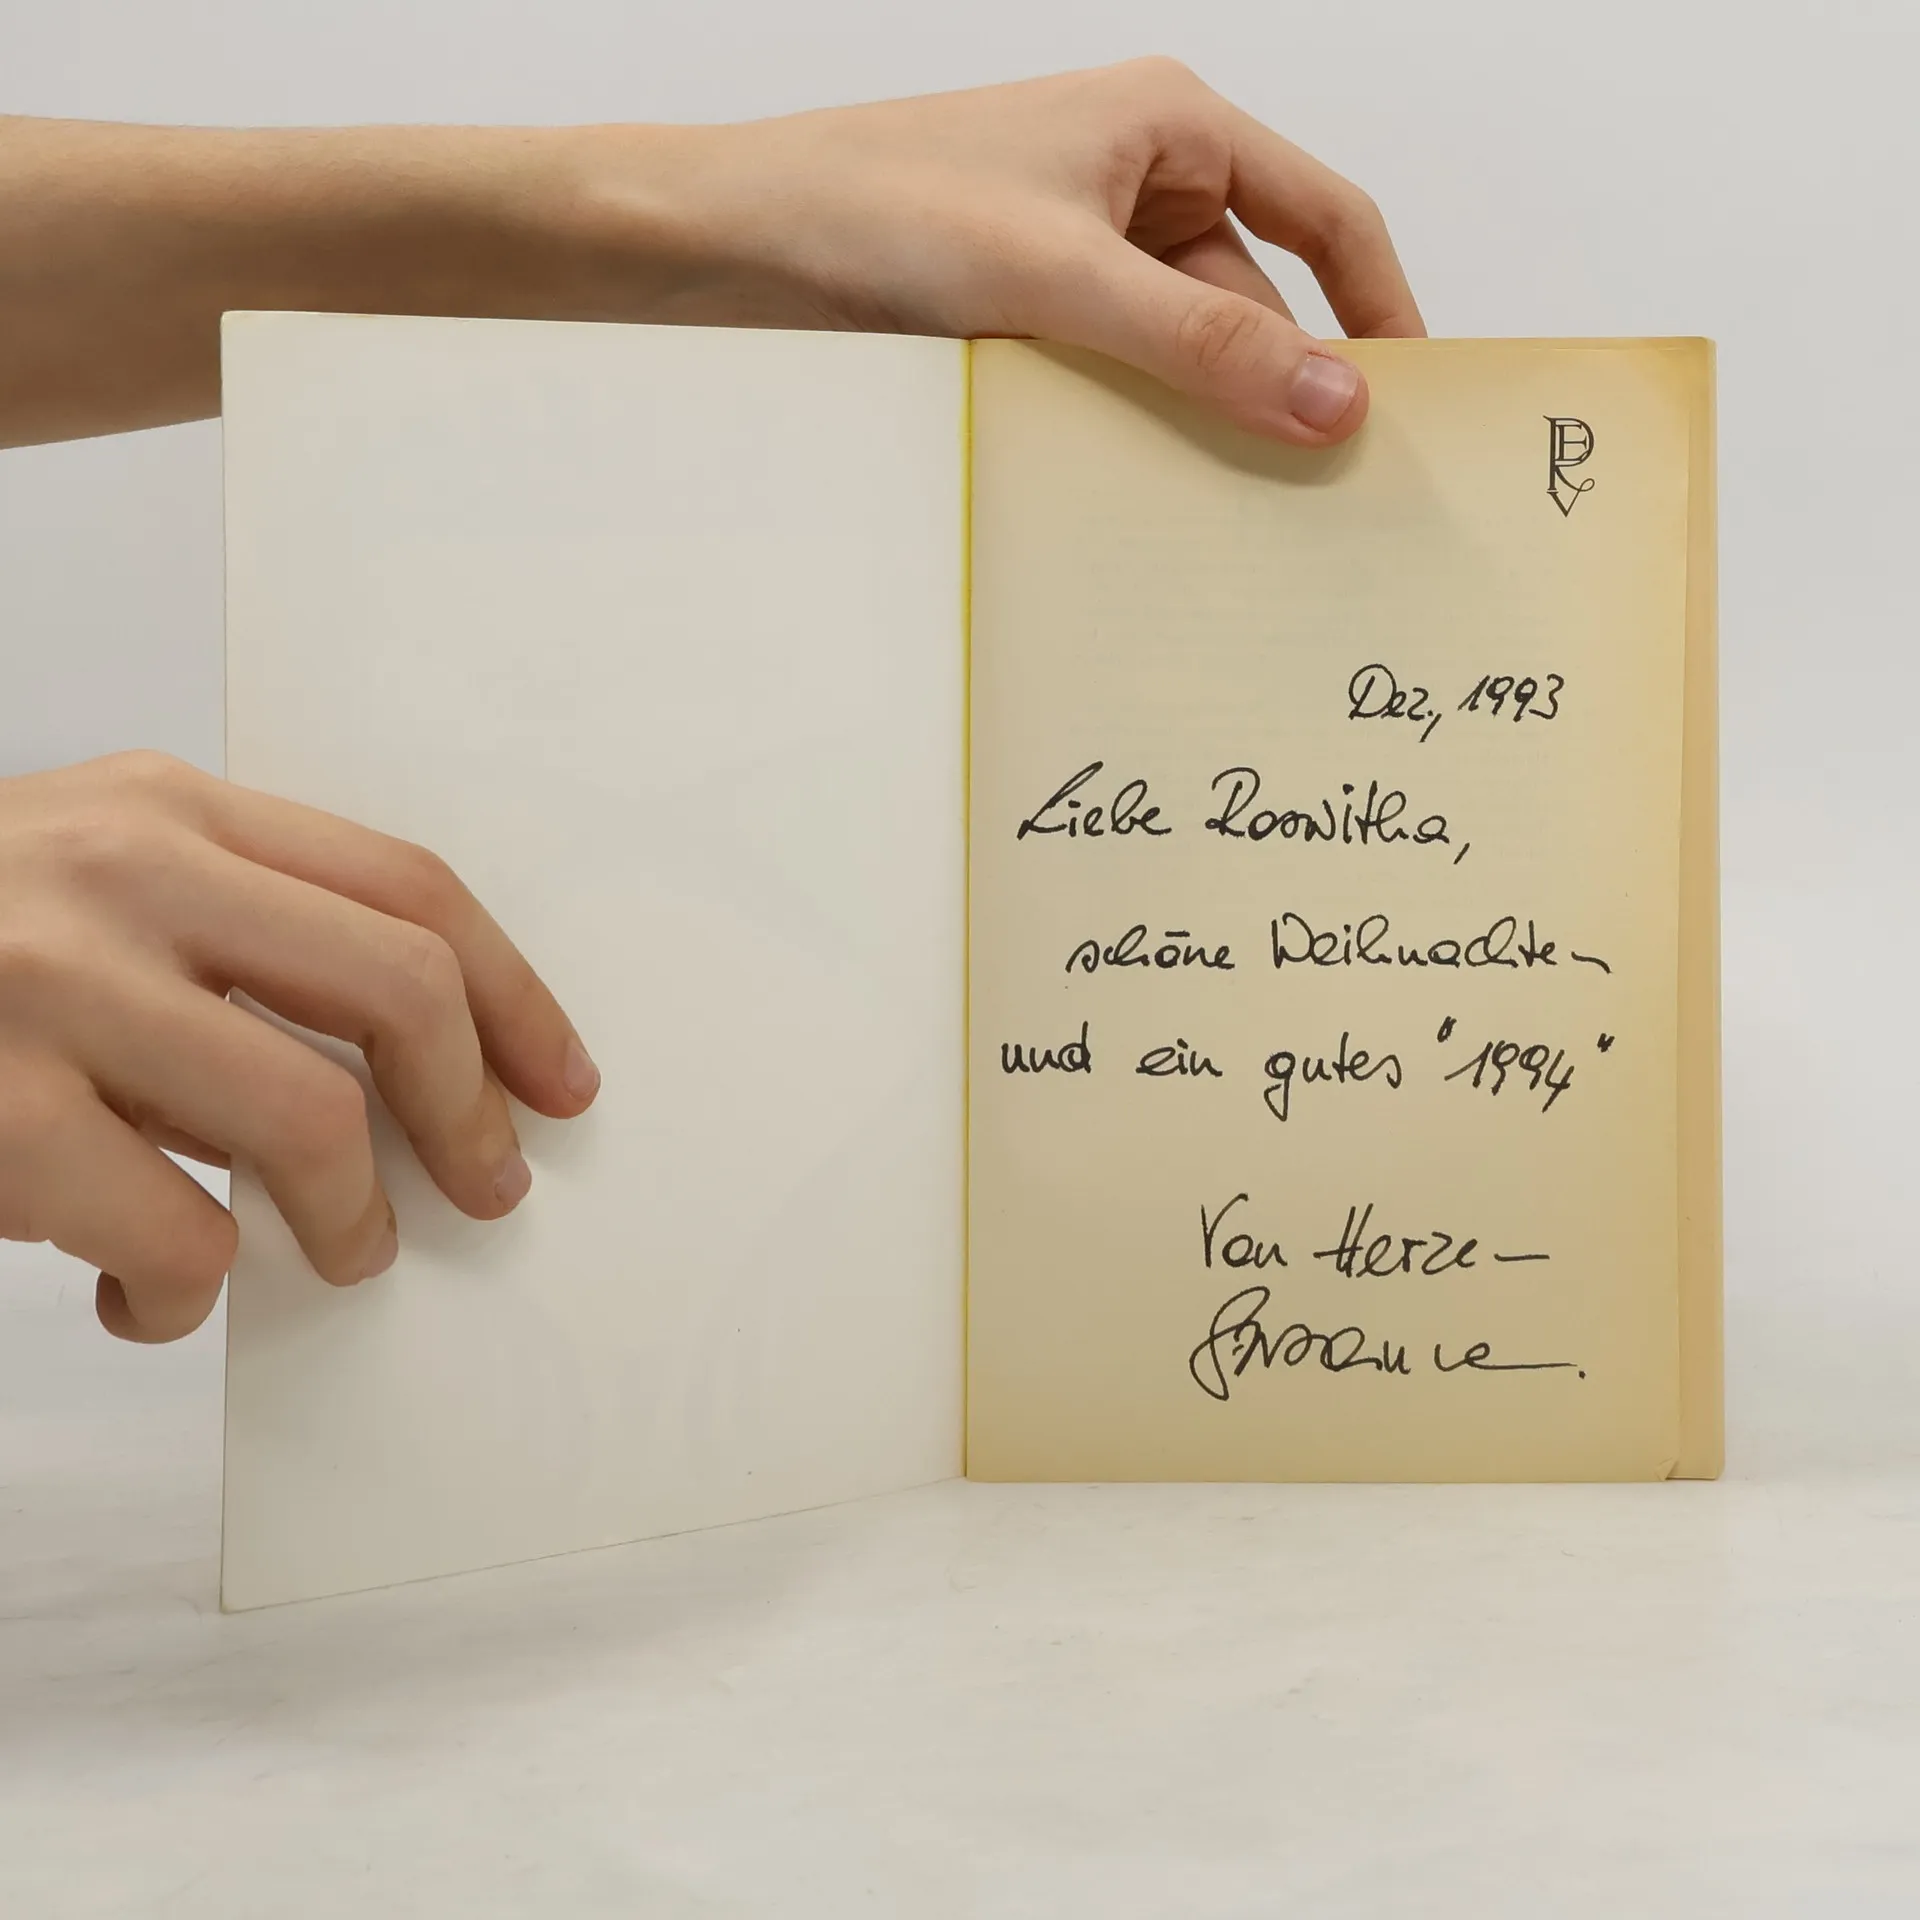 PEV
Dez., 1993
Liebe Roswitha,
schöne Weihnachten
und ein gutes "1994"
Von Herzen
Susanne.